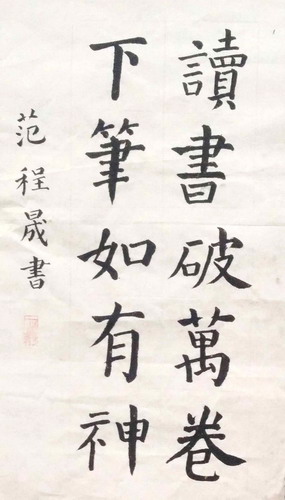 讀書破萬卷
下筆如有神
范程晟書